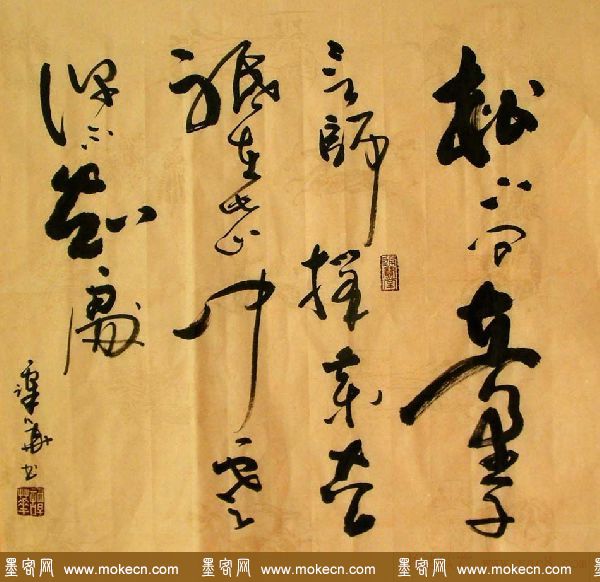 松下问童子
言師採藥去
祇在此山中雲
深不知處
譚华书
墨客网 www.mokecn.com 墨客网 www.mokecn.com 墨客网 www.mokecn.com